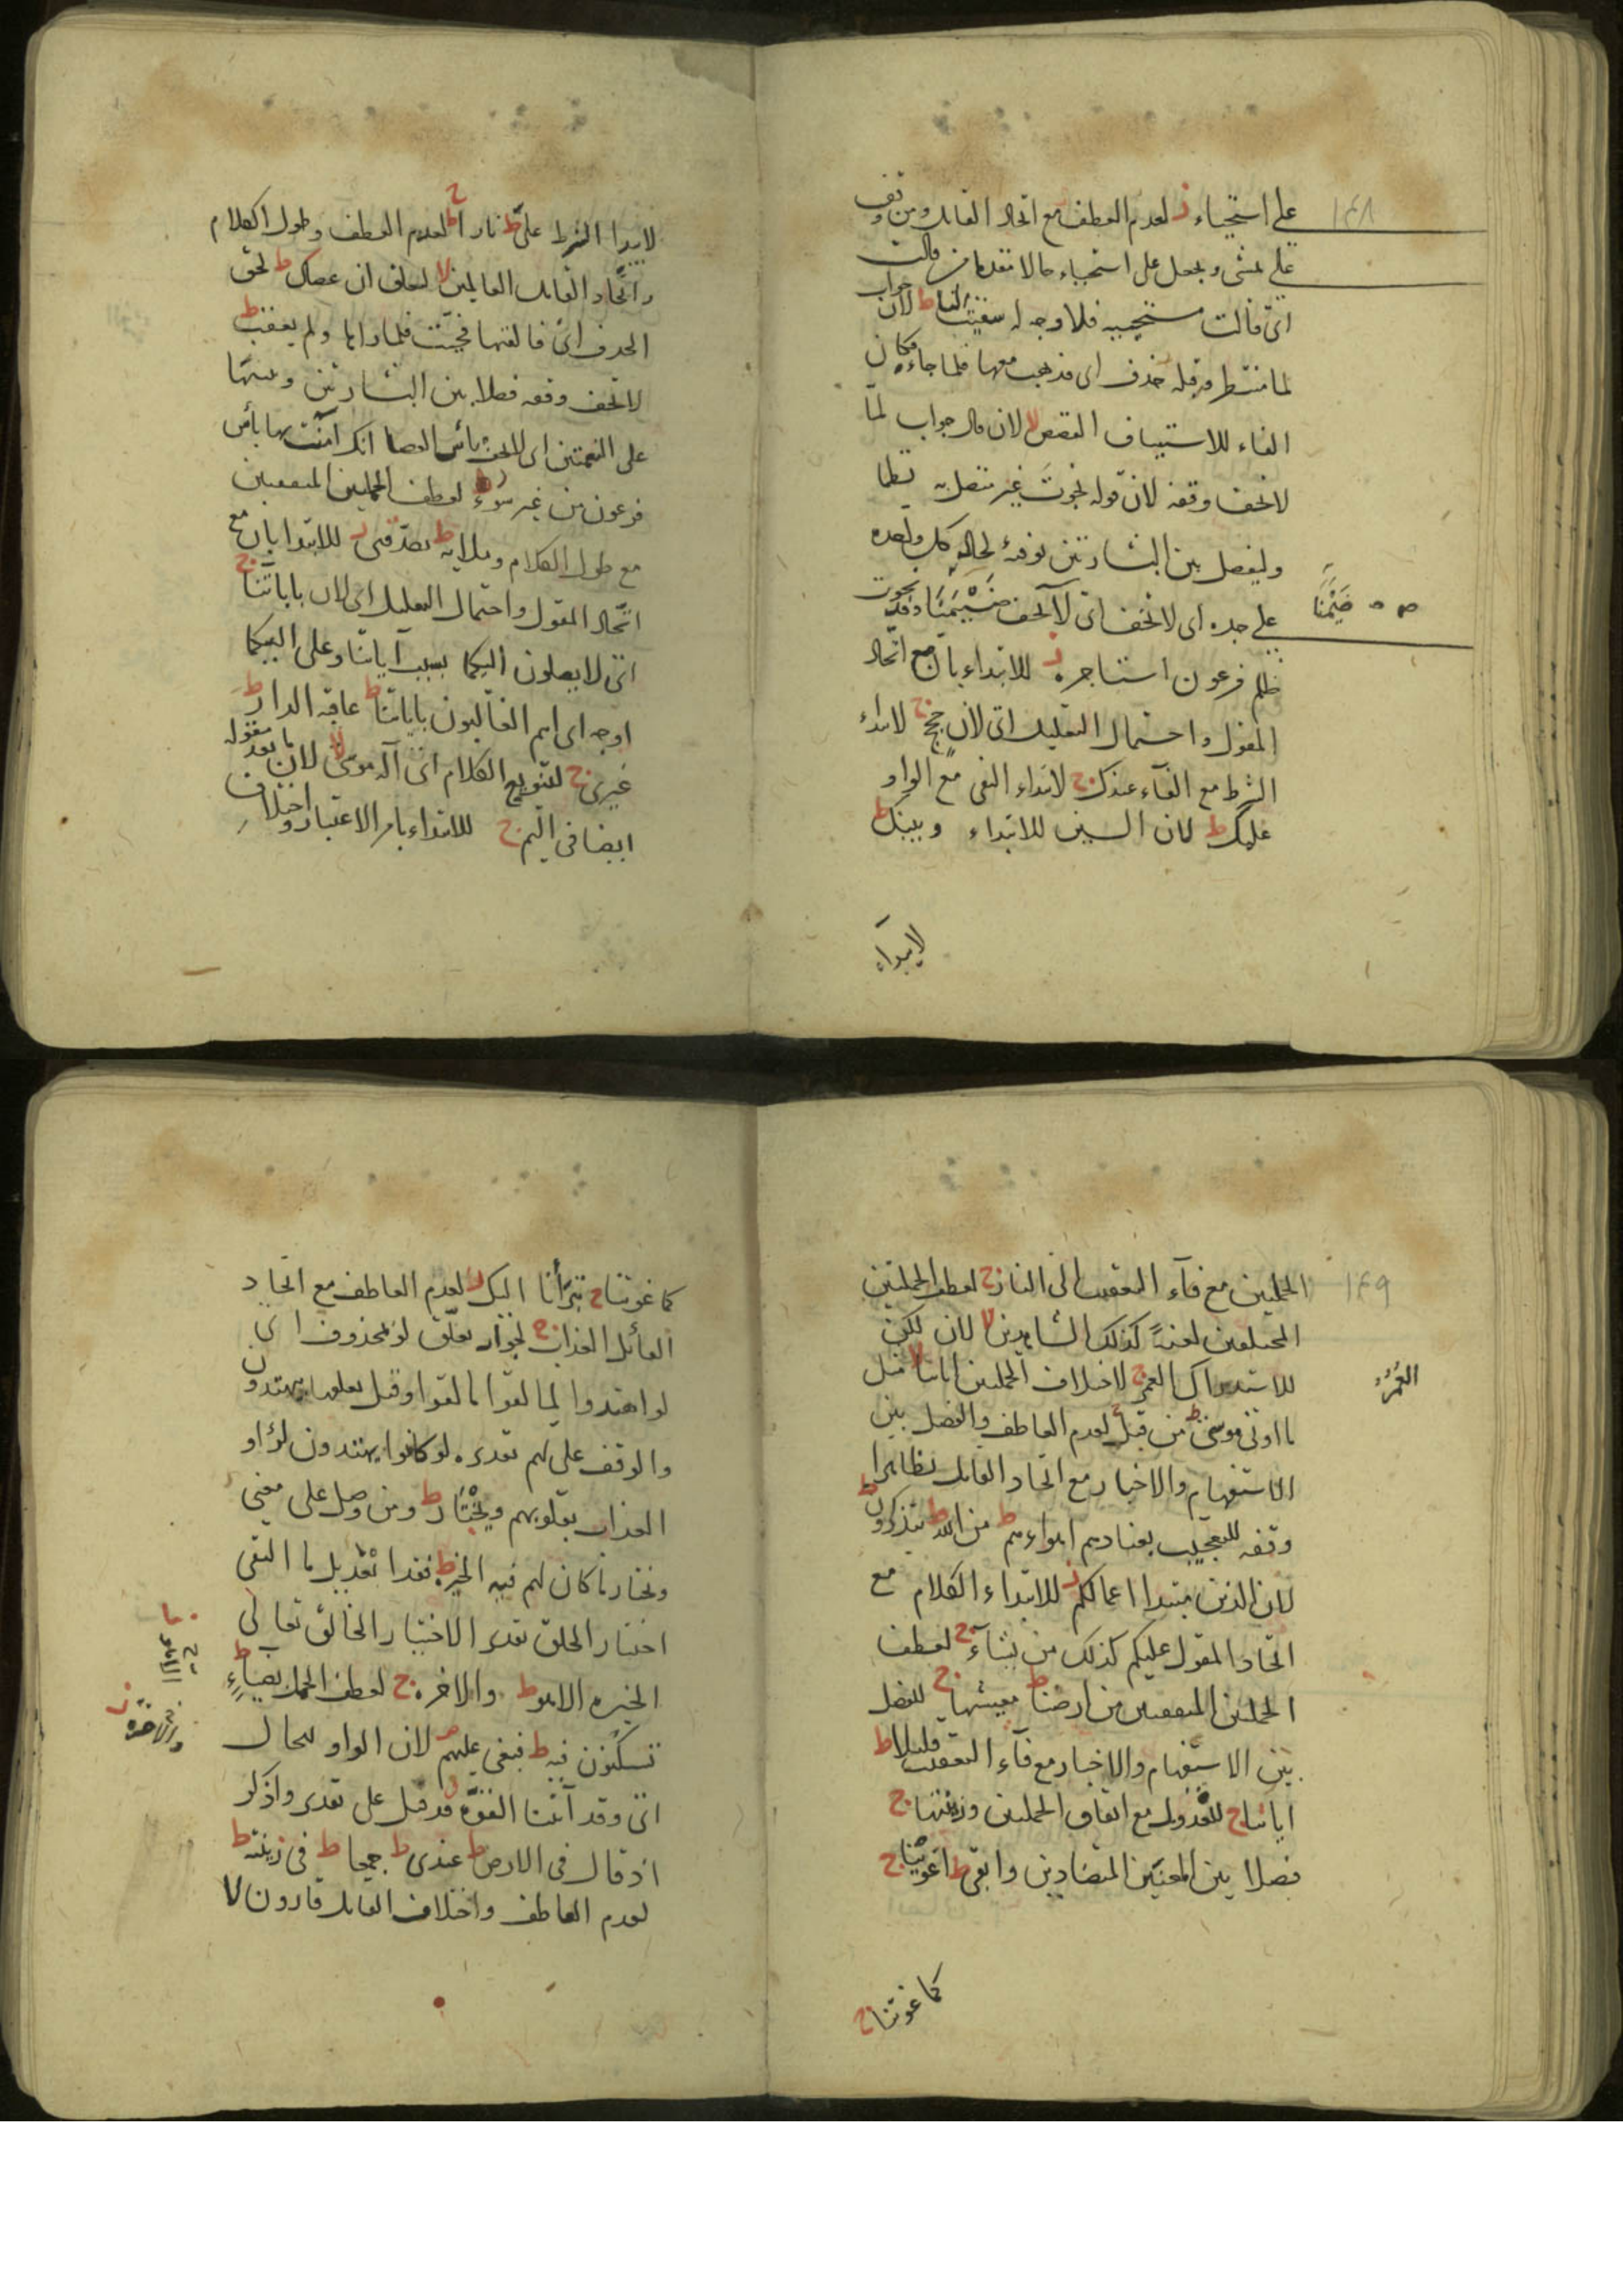 ١٤٨
على استحياء ز لعدم العطف مع اتحاد القايل ومن وقف
على تمشى وجعل على استحياء حالا مقدما من قالت
اى قالت مستحييه فلا وجه له سقيت لنا ط لان جواب
لما منتظر فيه حذف اى فذهب معها فلما جاءه كان
الفاء للاستيناف القصص لا لان قال جواب لما
لا تخف وقفه لان قوله نجوت غير متصل به نظما
وليفصل بين البشارتين توفية لحال كل واحده
على حده اى لا تخف اى لا تخف ضيما وقد نجوت
ضيما
ظلم فرعون استاجره ز للابتداء بان مع اتحاد
المقول واحتمال التعليل اى لان حجج ج لابتداء
الشرط مع الفاء عندك ج لابتداء النفى مع الواو
عليك ط لان السين للابتداء وبينك ط
لابتداء
لابتدا الشرط على ط نارا ط ج لعدم العطف وطول الكلام
واتحاد القايل العالمين لا لعطف ان عصاك ط لحق
الحذف اى فالقتها فحييت فلما راها ولم يعقب ط
لا تخف وقفه فصلا بين البشارتين وتنبيها
على النعمتين اى لا تخف باس العصا انك امنت بها باس
فرعون من غير سوء ز لعطف الجملتين المتفقتين
مع طول الكلام وملايه ط يصدقنى ز للابتدا بان مع
اتحاد المقول واحتمال التعليل اى لان باياتنا ج
اى لا يصلون اليكما بسبب آياتنا وعلى اليكما
اوجه اى انتم الغالبون باياتنا ط عاقبه الدار ط
غيرى ج لتنويع الكلام اى اله موسى لا لان ما بعد مقوله
ايضا فى اليم ج للابتداء بامر الاعتبار واختلاف
١٤٩
الجملتين مع فاء التعقيب الى النار ج لعطف الجملتين
المختلفتين لعنة ج كذلك الشاهدين لا لان لكن
للاستدراك العمر ج لاختلاف الجملتين اياتنا لا مثل
العمر
ما اوتى موسى ط من قبل ج لعدم العاطف والفصل بين
الاستفهام والاخبار مع اتحاد القايل تظاهرا
وقفه للتعجيب بعنادهم اهواءهم ط من الله ط يتذكرون ط
لان الذين مبتدا اعمالكم ز للابتداء الكلام مع
اتحاد المقول عليكم كذلك من يشآء ج لعطف
الجملتين المتفقتين من ارضنا ط معيشتها ج للفصل
بين الاستفهام والاخبار مع فآء التعقيب قليلا ط
اياتنا ج للعدول مع اتفاق الجملتين وزينتها ج
فصلا بين المعنيين المتضادين وابقى ط اغوينا ج
كما غوينا ج
كما غوينا ج تبرأنا اليك ز لعدم العاطف مع اتحاد
القائل العذاب ج لجواز تعلق لو بمحذوف اى
لو اهتدوا لما لقوا ما لقوا وقيل تعلقها يهتدون
والوقف على لهم تقديره لو كانوا يهتدون لرأوا
العذاب بقلوبهم ويختار ط ومن وصل على معنى
ونختار ما كان لهم فيه الخير فقد ابعد بل ما النفى
اختيار الخلق تقدير الاختيار الخالق تعالى
الخيره الا هو ط والاخره ج لعطف الجمل بضياء ط
الا هو ط
والاخرة ز
تسكنون فيه ط فبغى عليهم ص لان الواو للحال
اى وقد آتينا القوة قد قيل على تقدير واذكر
اذ قال فى الارض ط عندى ط جمعا ط فى زينته ط
لعدم العاطف واختلاف القايل قارون لا